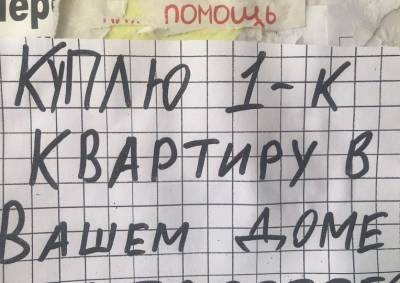 ПОМОЩЬ
КУПЛЮ 1-К
КВАРТИРУ В
ВАШЕМ ДОМЕ